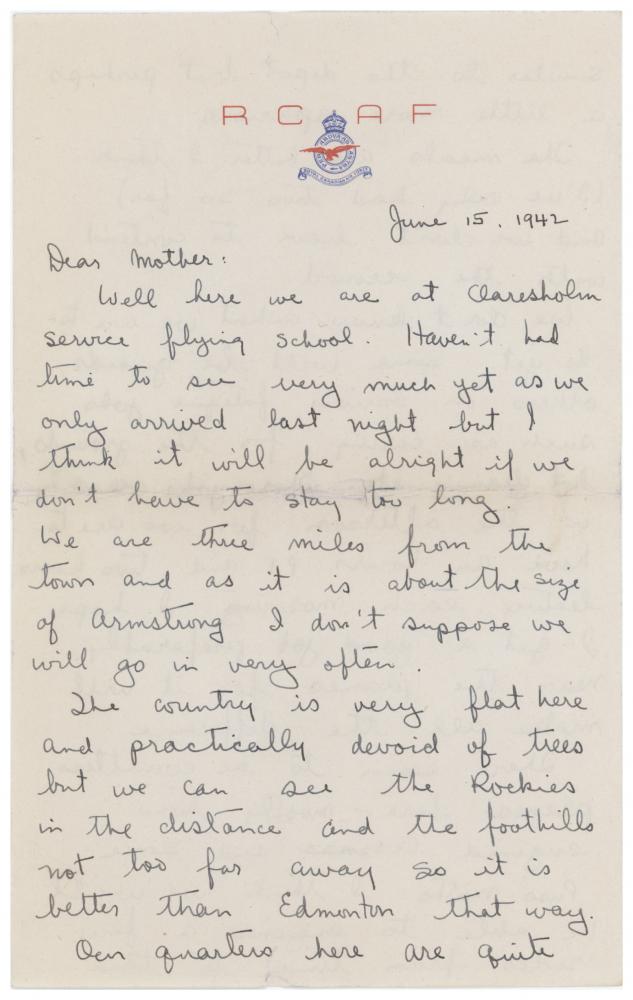 R C A F
PER ARDUA AD ASTRA
ROYAL CANADIAN AIR FORCE
June 15, 1942
Dear Mother:
Well here we are at Claresholm
service flying school. Haven't had
time to see very much yet as we
only arrived last night but I
think it will be alright if we
don't have to stay too long.
We are three miles from the
town and as it is about the size
of Armstrong I don't suppose we
will go in very often.
The country is very flat here
and practically devoid of trees
but we can see the Rockies
in the distance and the foothills
not too far away so it is
better than Edmonton that way.
Our quarters here are quite